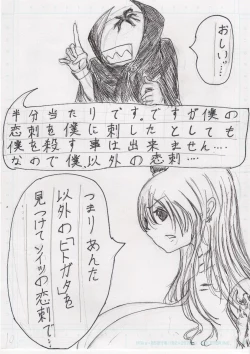 おしい!!…
半分当たりです。ですが僕の
恋刺を僕に刺したとしても
僕を殺す事は出来ません‥‥
なので僕以外の恋刺‥‥
つまりあんた
以外の「ヒトガタ」を
見つけてソイツの恋刺で‥